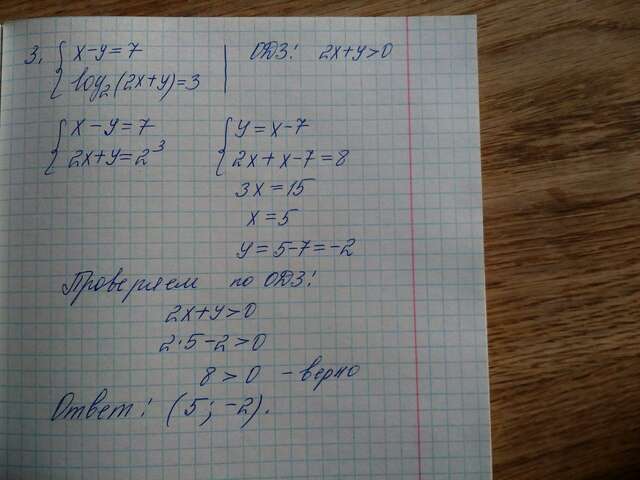 3. { x-y=7 | ОДЗ: 2x+y>0
log₂(2x+y)=3
{ x-y=7 { y=x-7
2x+y=2³ 2x+x-7=8
3x=15
x=5
y=5-7=-2
Проверяем по ОДЗ:
2x+y>0
2·5-2>0
8>0 -верно
Ответ: (5; -2).